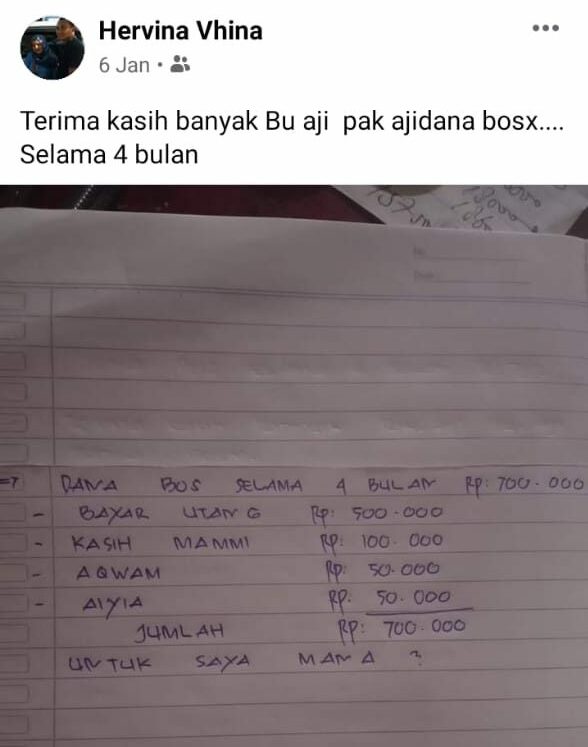 Hervina Vhina
6 Jan
Terima kasih banyak Bu aji pak ajidana bosx....
Selama 4 bulan
DANA BOS SELAMA 4 BULAN Rp: 700.000
- BAYAR UTANG Rp: 500.000
- KASIH MAMMI RP: 100.000
- AQWAM Rp: 50.000
- AIYIA RP: 50.000
JUMLAH RP: 700.000
UNTUK SAYA MANA ?